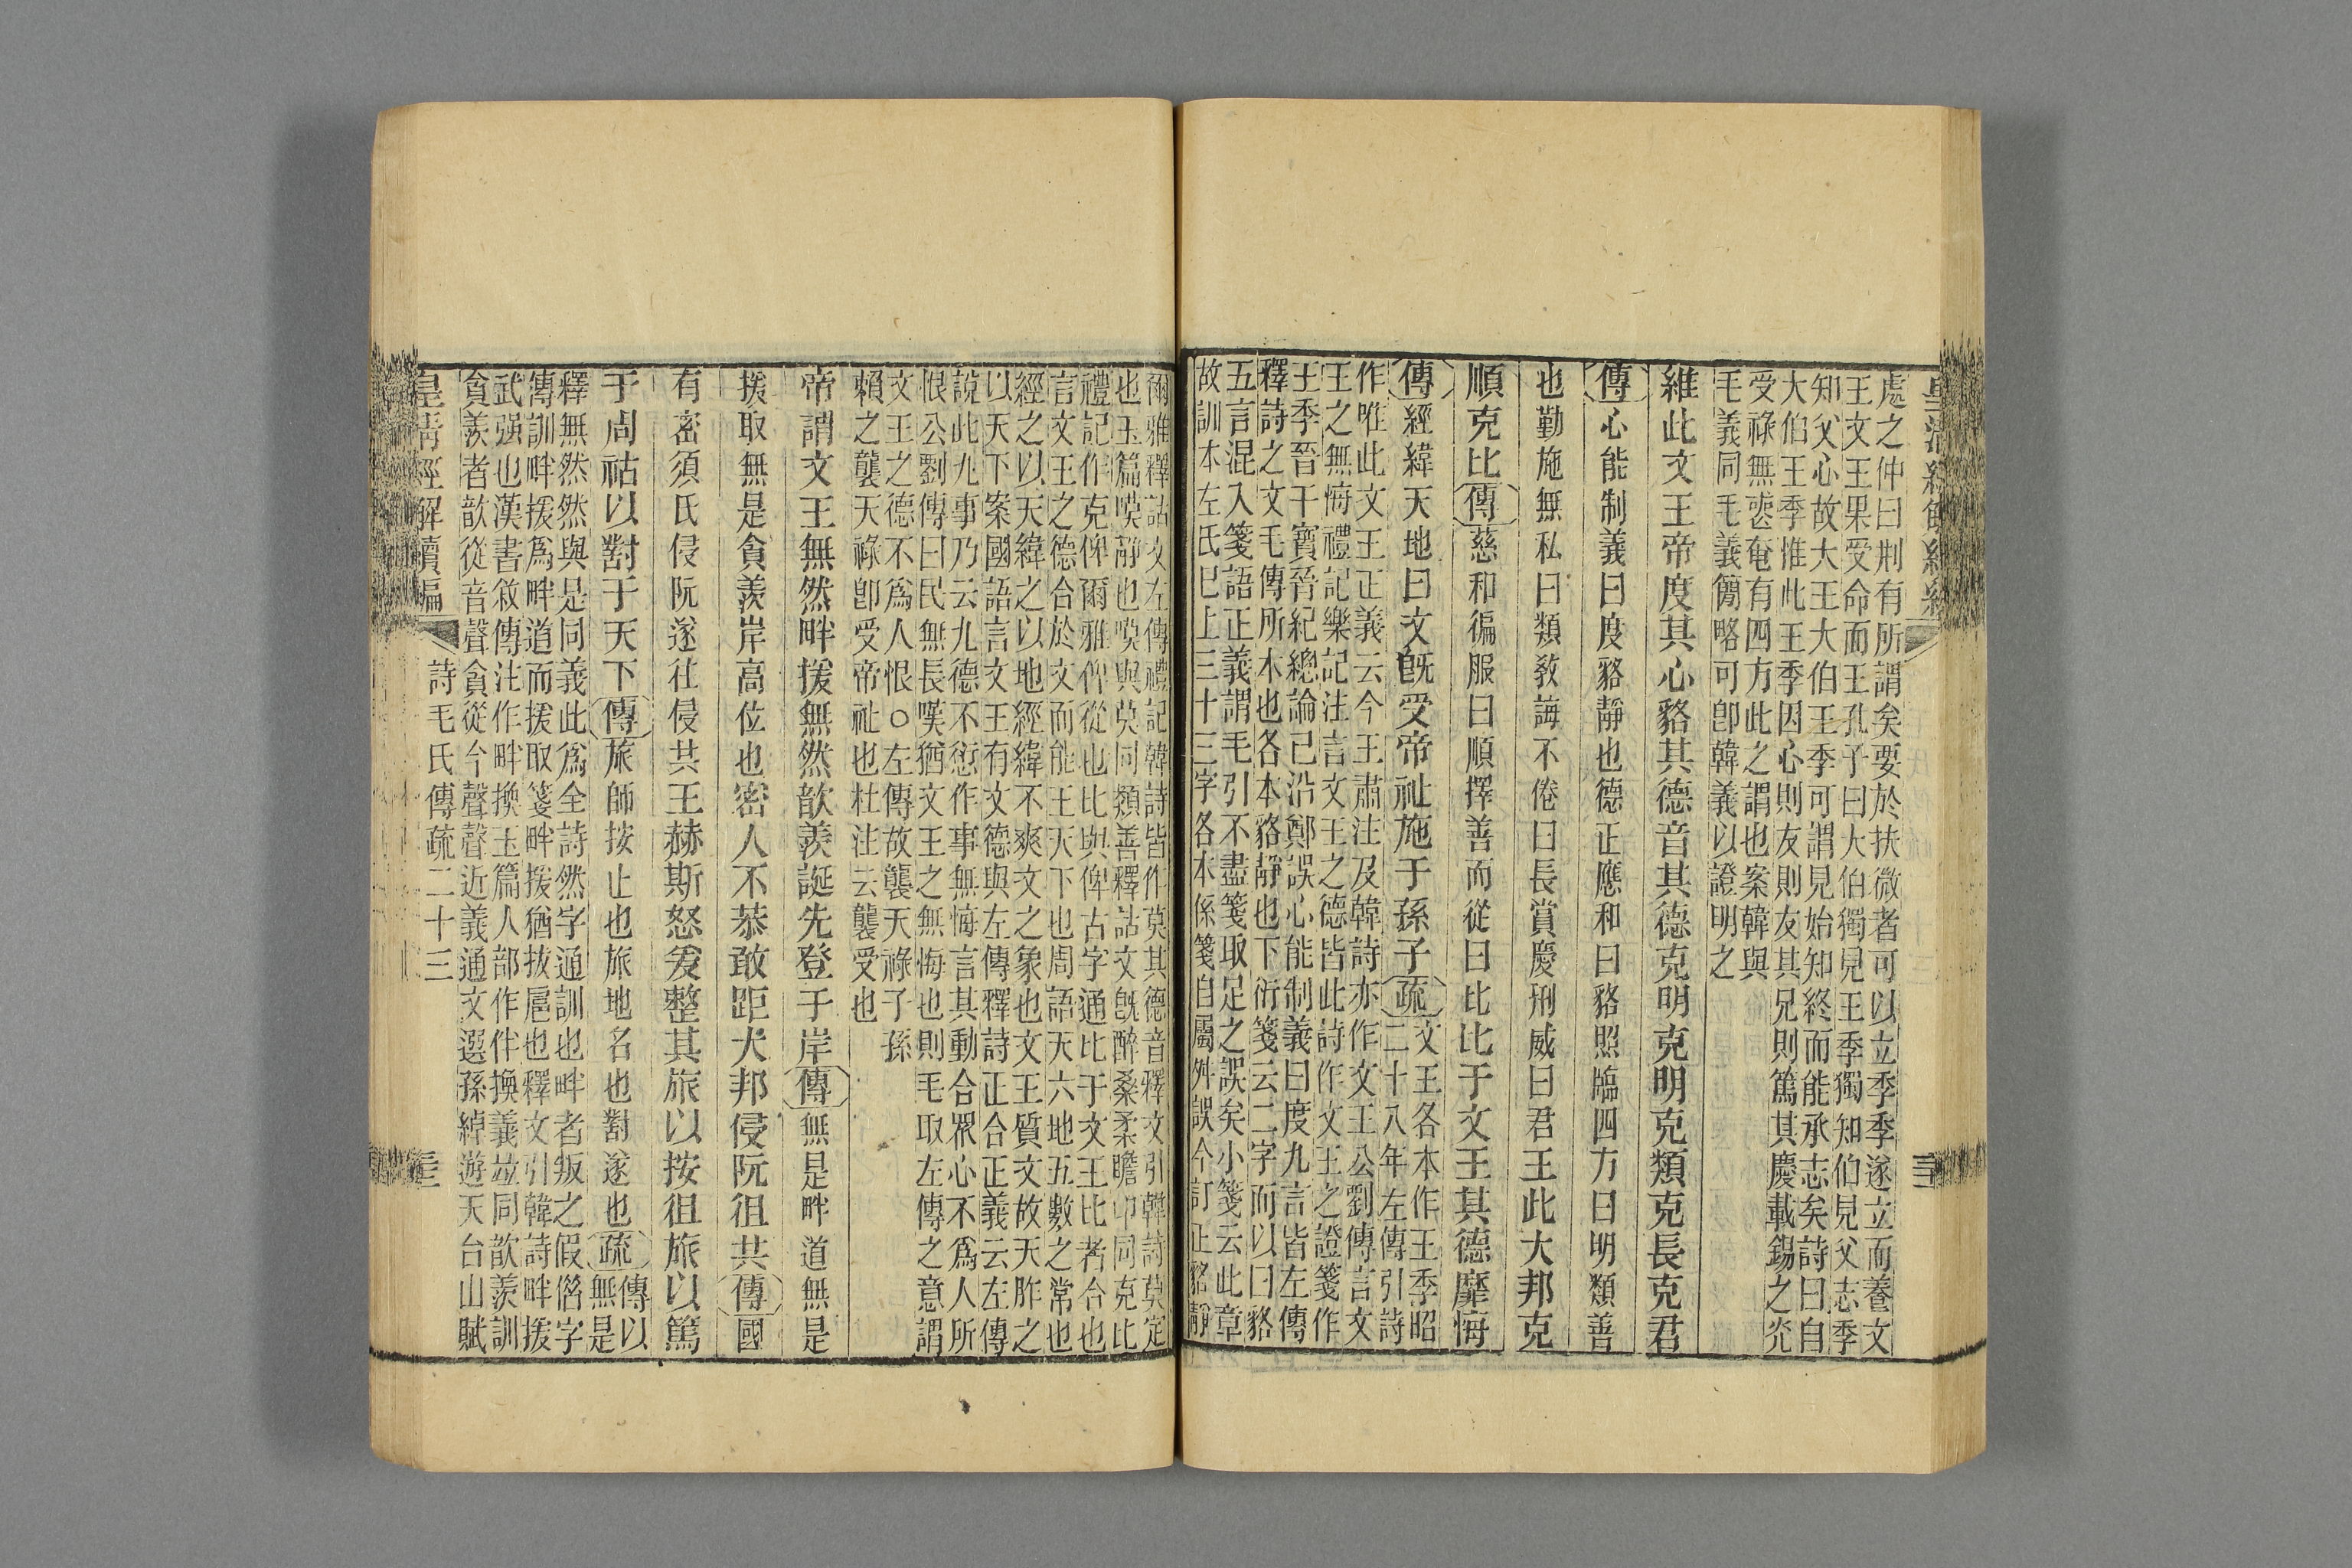 皇清經解續編
三
處之仲曰刑有所謂矣要於扶微者可以立季季遂立而養文
王文王果受命而王孔子曰大伯獨見王季獨知伯見父志季
知父心故大王大伯王季可謂見始知終而能承志矣詩曰自
大伯王季惟此王季因心則友則友其兄則篤其慶載錫之光
受祿無喪奄有四方此之謂也案韓與
毛義同毛義簡略可卽韓義以證明之
維此文王帝度其心貉其德音其德克明克明克類克長克君
傳心能制義曰度貉靜也德正應和曰貉照臨四方曰明類善
也勤施無私曰類敎誨不倦曰長賞慶刑威曰君王此大邦克
順克比傳慈和徧服曰順擇善而從曰比比于文王其德靡悔
傳經緯天地曰文旣受帝祉施于孫子疏
文王各本作王季昭
二十八年左傳引詩
作唯此文王正義云今王肅注及韓詩亦作文王公劉傳言文
王之無悔禮記樂記注言文王之德皆此詩作文王之證箋作
王季晉干寶晉紀總論已沿鄭誤心能制義曰度九言皆左傳
釋詩之文毛傳所本也各本貉靜也下衍箋云二字而以曰貉
五言混入箋語正義謂毛引不盡箋取足之誤矣小箋云此章
故訓本左氏巳上三十三字各本係箋自屬舛誤今訂正貉靜
爾雅釋詁文左傳禮記韓詩皆作莫其德音釋文引韓詩莫定
也玉篇嗼靜也嗼與莫同類善釋詁文旣醉桑柔瞻卬同克比
禮記作克俾爾雅俾從也比與俾古字通比于文王比者合也
言文王之德合於文而能王天下也周語天六地五數之常也
經之以天緯之以地經緯不爽文之象也文王質文故天胙之
以天下案國語言文王有文德與左傳釋詩正合正義云左傳
說此九事乃云九德不愆作事無悔言其動合眾心不爲人所
恨公劉傳曰民無長嘆猶文王之無悔也則毛取左傳之意謂
文王之德不爲人恨○左傳故襲天祿子孫
賴之襲天祿卽受帝祉也杜注云襲受也
帝謂文王無然畔援無然歆羨誕先登于岸傳無是畔道無是
援取無是貪羨岸高位也密人不恭敢距大邦侵阮徂共傳國
有密須氏侵阮遂往侵共王赫斯怒爰整其旅以按徂旅以篤
于周祜以對于天下傳旅師按止也旅地名也對遂也疏
傳以
無是
釋無然然與是同義此爲全詩然字通訓也畔者叛之假借字
傳訓畔援爲畔道而援取箋畔援猶拔扈也釋文引韓詩畔援
武强也漢書敘傳注作畔換玉篇人部作伴換義竝同歆羨訓
貪羨者歆從音聲貪從今聲聲近義通文選孫綽遊天台山賦
皇清經解續編
詩毛氏傳疏二十三